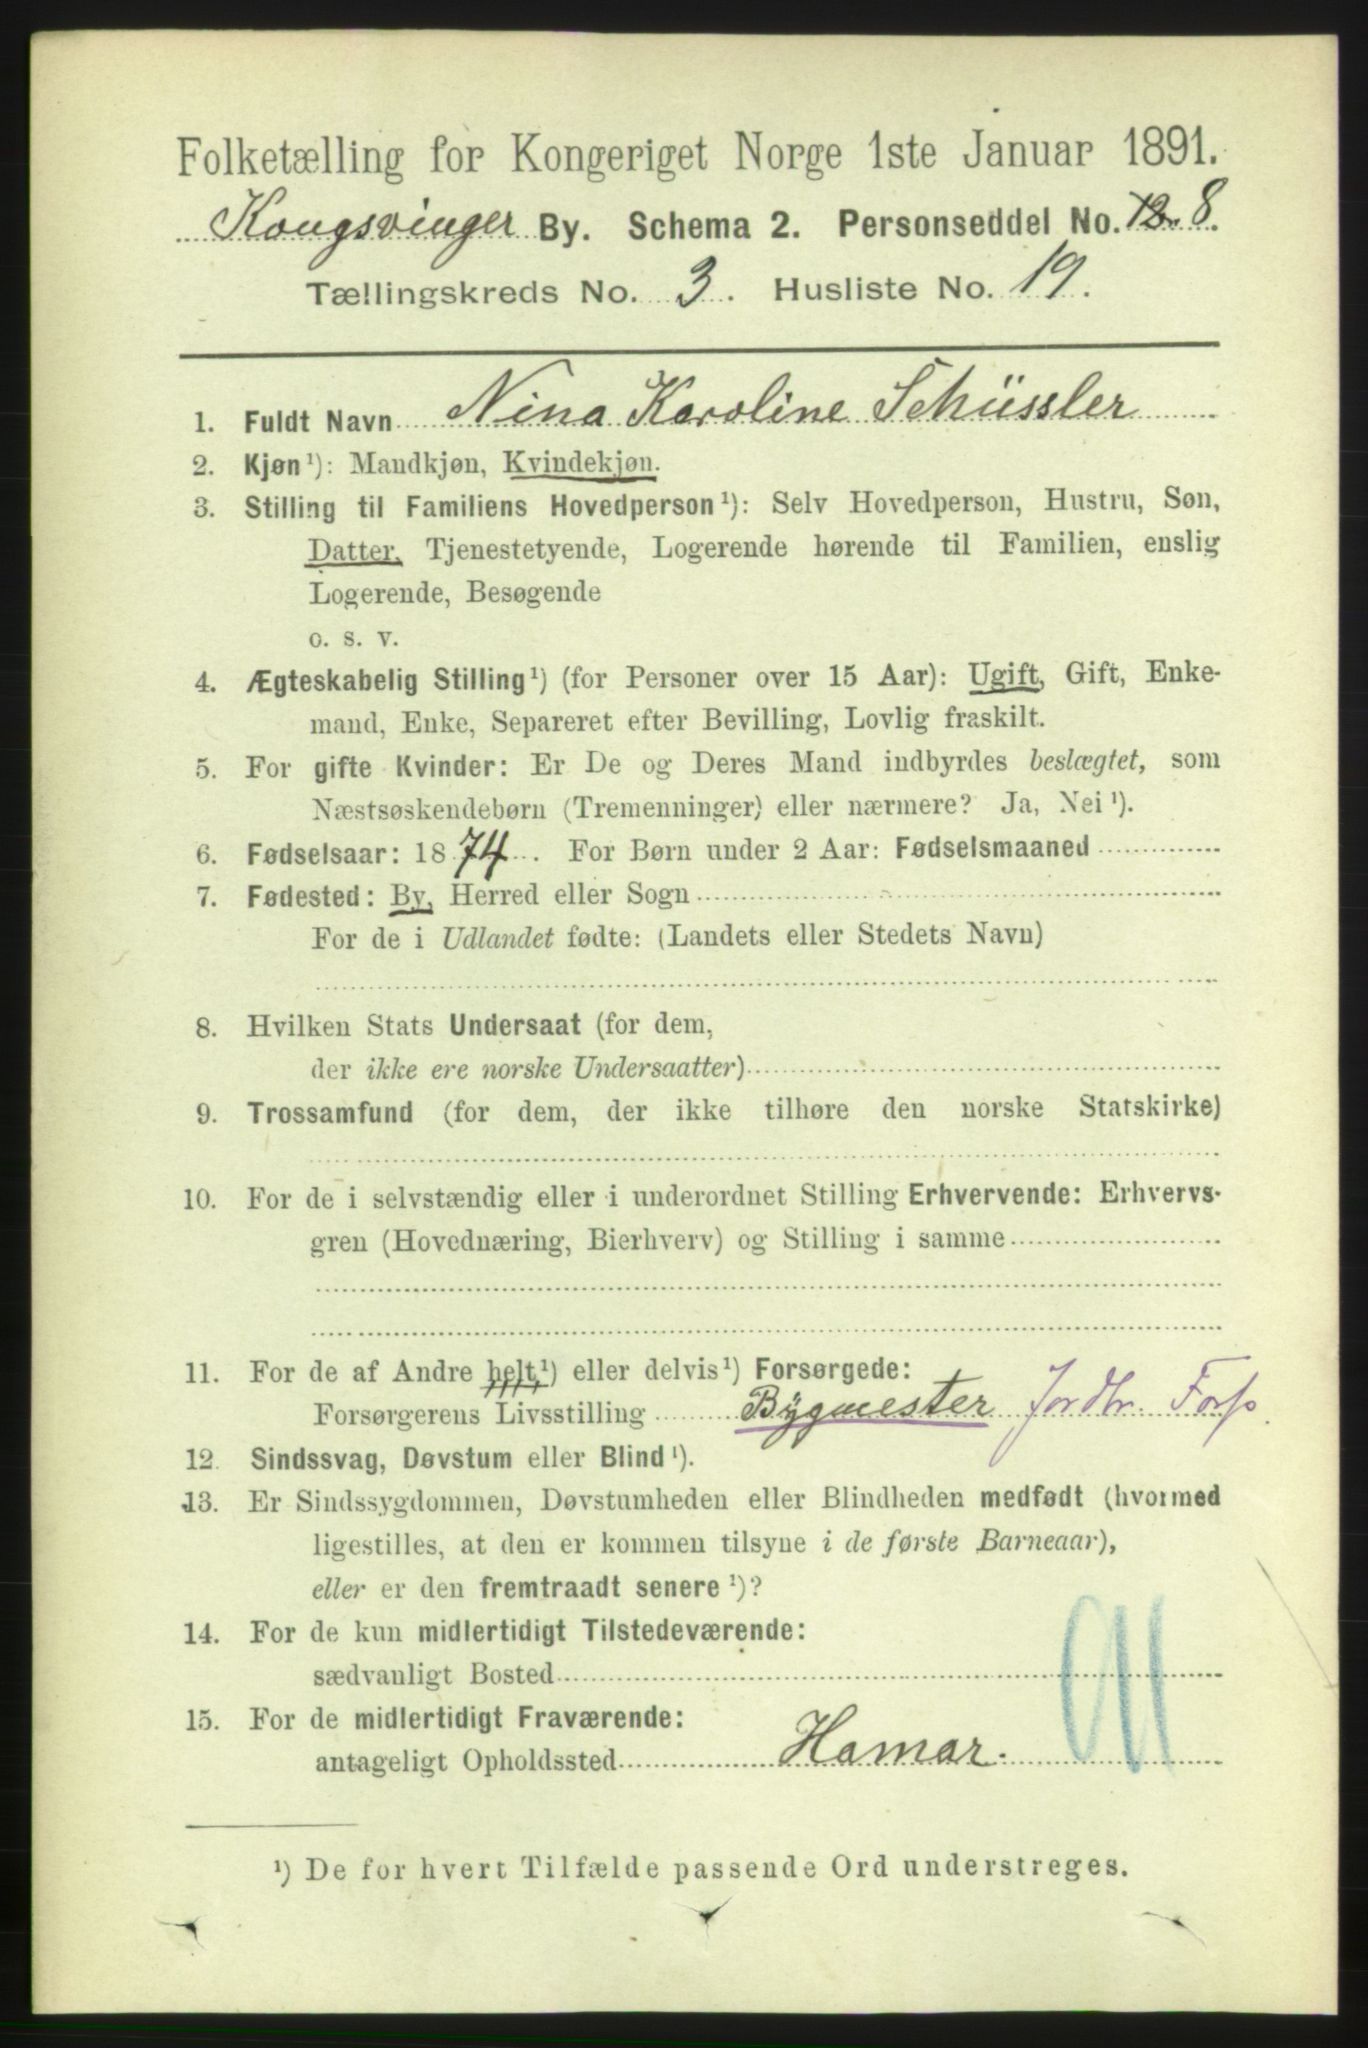 Folketælling for Kongeriget Norge 1ste Januar 1891.
Kongsvinger By. Schema 2. Personseddel No. 12. 8.
Tællingskreds No. 3. Husliste No. 19.
1. Fuldt Navn Nina Karoline Schüssler
2. Kjøn¹): Mandkjøn, Kvindekjøn.
3. Stilling til Familiens Hovedperson¹): Selv Hovedperson, Hustru, Søn,
Datter, Tjenestetyende, Logerende hørende til Familien, enslig
Logerende, Besøgende
o. s. v.
4. Ægteskabelig Stilling¹) (for Personer over 15 Aar): Ugift, Gift, Enke-
mand, Enke, Separeret efter Bevilling, Lovlig fraskilt.
5. For gifte Kvinder: Er De og Deres Mand indbyrdes beslægtet, som
Næstsøskendebørn (Tremenninger) eller nærmere? Ja, Nei¹).
6. Fødselsaar: 1874. For Børn under 2 Aar: Fødselsmaaned
7. Fødested: By, Herred eller Sogn
For de i Udlandet fødte: (Landets eller Stedets Navn)
8. Hvilken Stats Undersaat (for dem,
der ikke ere norske Undersaatter)
9. Trossamfund (for dem, der ikke tilhøre den norske Statskirke)
10. For de i selvstændig eller i underordnet Stilling Erhvervende: Erhvervs-
gren (Hovednæring, Bierhverv) og Stilling i samme
11. For de af Andre helt¹) eller delvis¹) Forsørgede:
Forsørgerens Livsstilling Bygmester Jordbr. Fors.
12. Sindssvag, Døvstum eller Blind¹).
13. Er Sindssygdommen, Døvstumheden eller Blindheden medfødt (hvormed
ligestilles, at den er kommen tilsyne i de første Barneaar),
eller er den fremtraadt senere¹)?
14. For de kun midlertidigt Tilstedeværende:
sædvanligt Bosted
15. For de midlertidigt Fraværende:
antageligt Opholdssted Hamar.
¹) De for hvert Tilfælde passende Ord understreges.